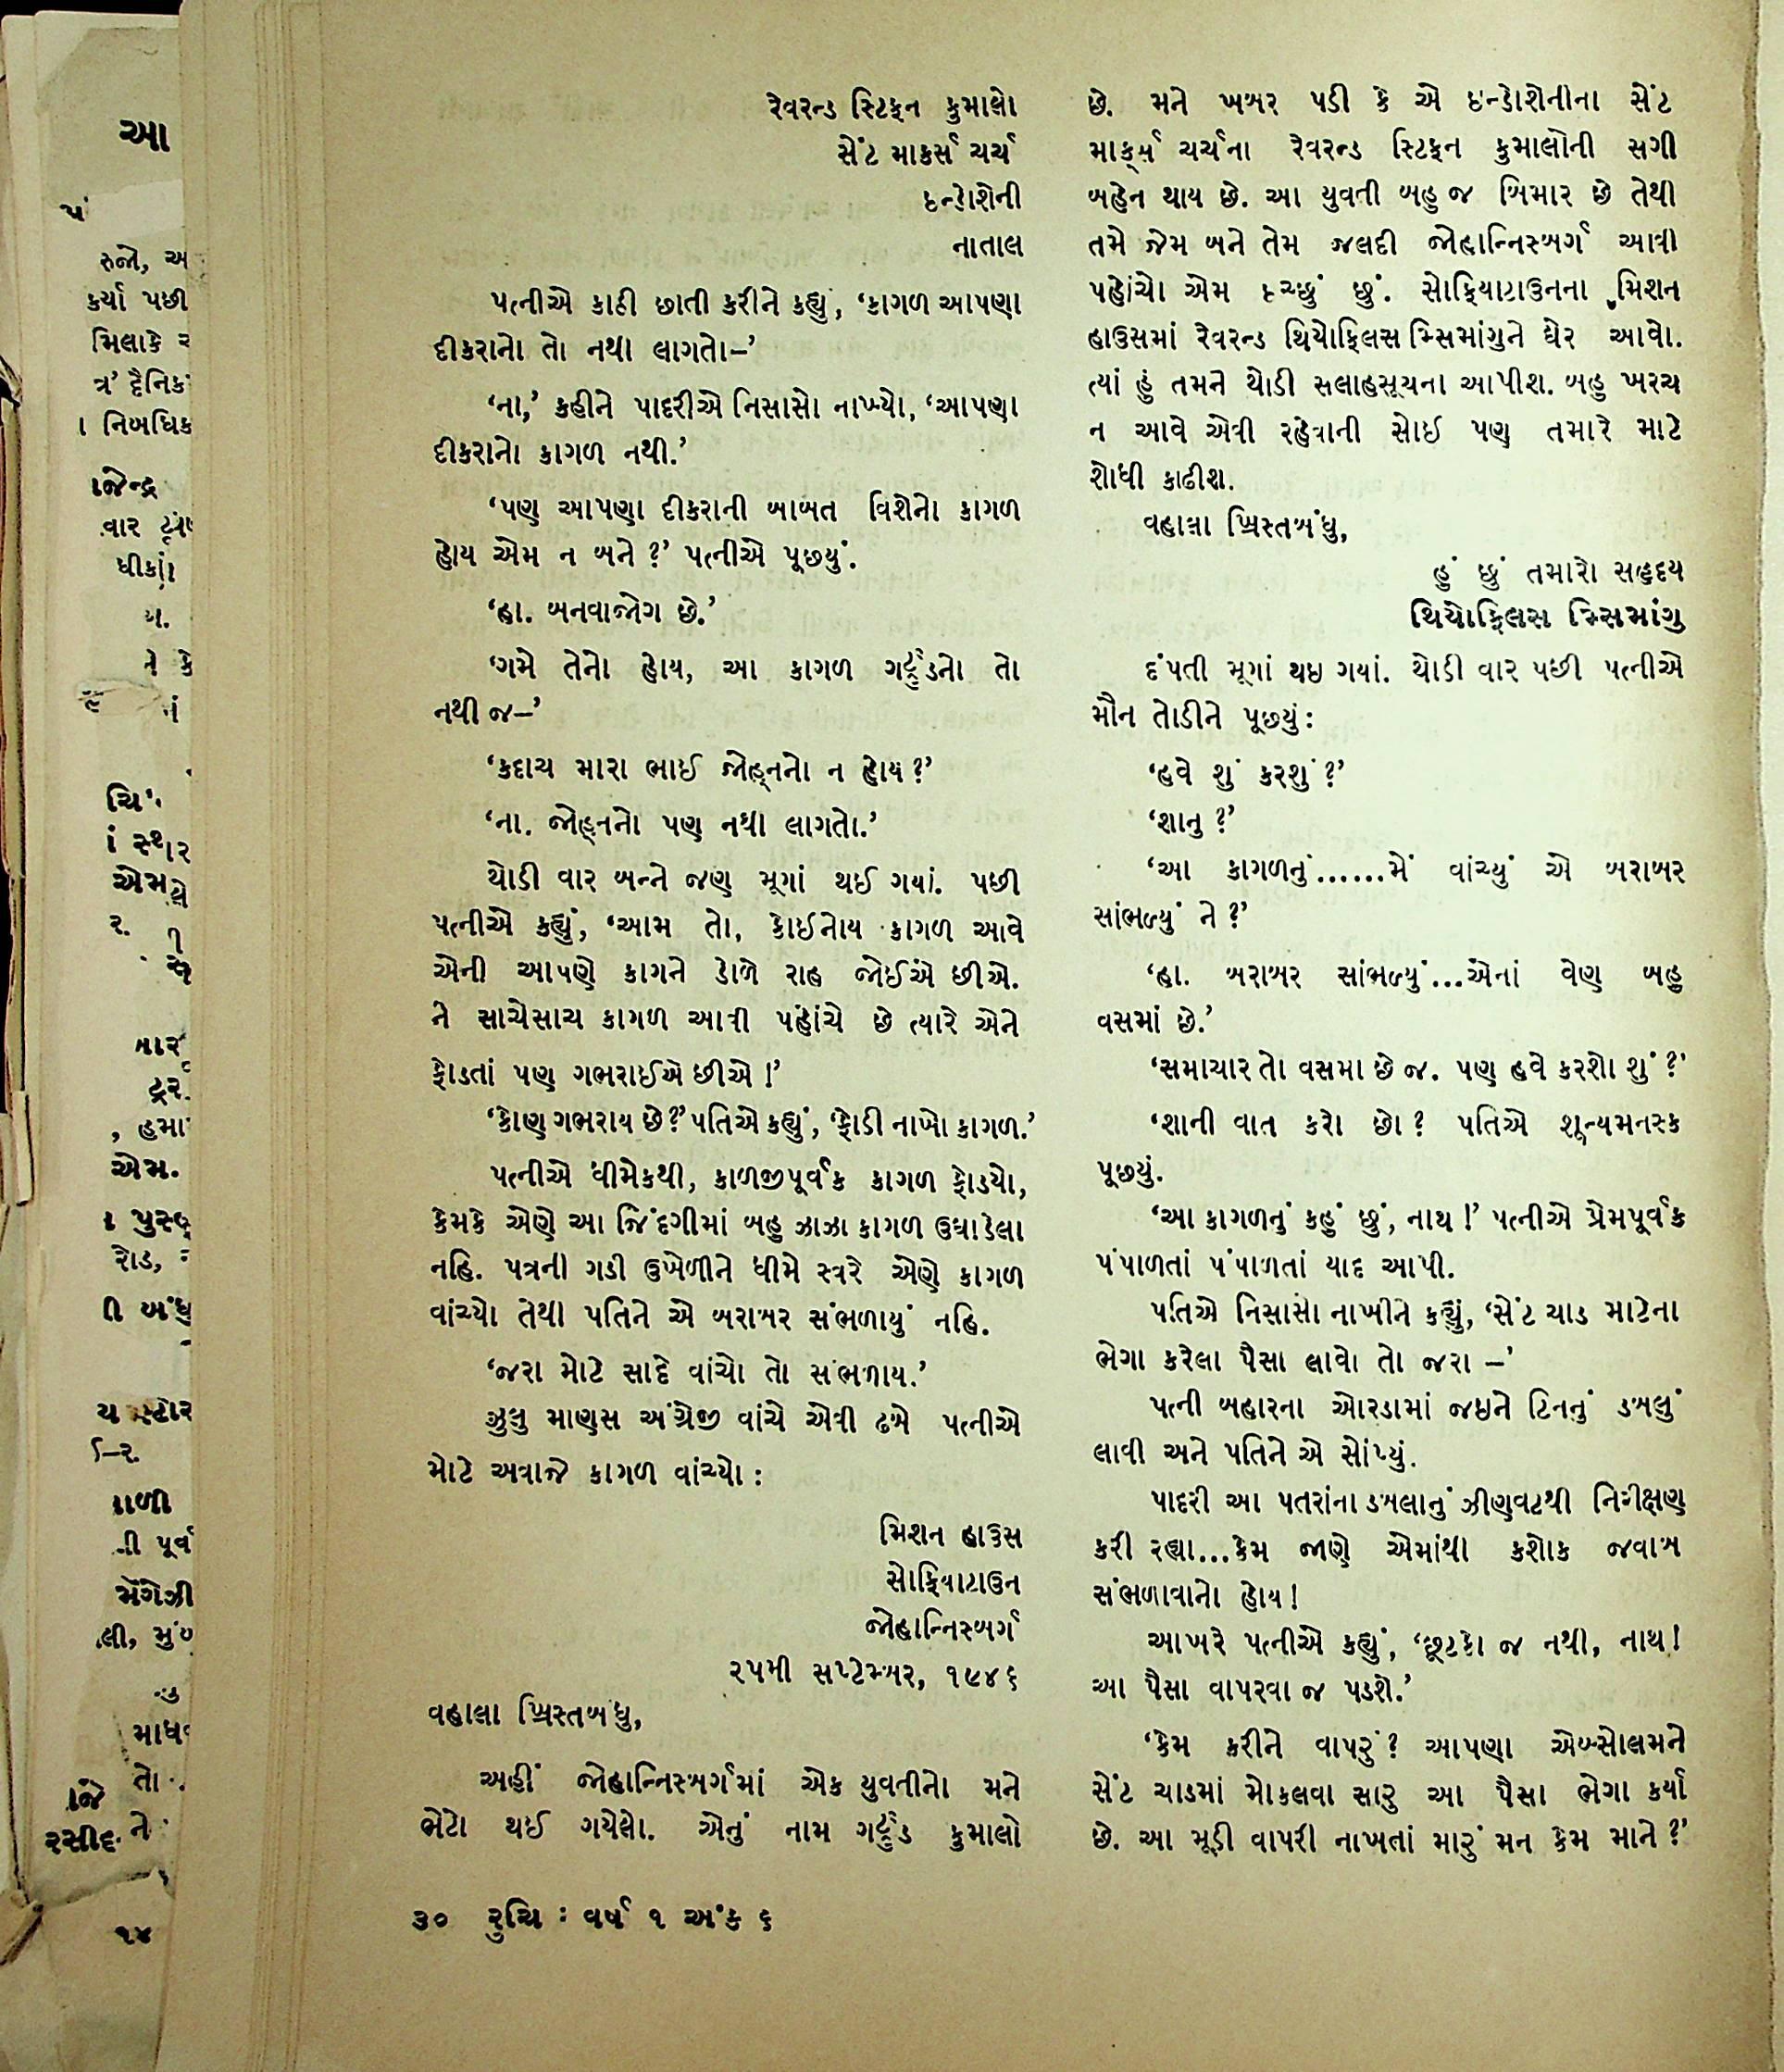 રેવરન્ડ સ્ટિફન કુમાલો
સેંટ માર્ક્સ ચર્ચ
ઇન્ડોશેની
નાતાલ
પત્નીએ કાઠી છાતી કરીને કહ્યું, ‘કાગળ આપણા
દીકરાનો તો નથી લાગતો–’
‘ના,’ કહીને પાદરીએ નિસાસો નાખ્યો, ‘આપણા
દીકરાનો કાગળ નથી.’
‘પણ આપણા દીકરાની બાબત વિશેનો કાગળ
હોય એમ ન બને ?’ પત્નીએ પૂછ્યું.
‘હા. બનવાજોગ છે.’
‘ગમે તેનો હોય, આ કાગળ ગર્ટ્રુડનો તો
નથી જ–’
‘કદાચ મારા ભાઈ જોહ્નનો ન હોય ?’
‘ના. જોહ્નનો પણ નથી લાગતો.’
થોડી વાર બન્ને જણ મૂગાં થઈ ગયાં. પછી
પત્નીએ કહ્યું, ‘આમ તો, કોઈનોય કાગળ આવે
એની આપણે કાગને ડોળે રાહ જોઈએ છીએ.
ને સાચેસાચ કાગળ આવી પહોંચે છે ત્યારે એને
ફોડતાં પણ ગભરાઈએ છીએ !’
‘કોણ ગભરાય છે?’ પતિએ કહ્યું, ‘ફોડી નાખો કાગળ.’
પત્નીએ ધીમેકથી, કાળજીપૂર્વક કાગળ ફોડ્યો,
કેમકે એણે આ જિંદગીમાં બહુ ઝાઝા કાગળ ઉઘાડેલા
નહિ. પત્રની ગડી ઉખેળીને ધીમે સ્વરે એણે કાગળ
વાંચ્યો તેથી પતિને એ બરાબર સંભળાયું નહિ.
‘જરા મોટે સાદે વાંચો તો સંભળાય.’
ઝુલુ માણસ અંગ્રેજી વાંચે એવી ઢબે પત્નીએ
મોટે અવાજે કાગળ વાંચ્યો :
મિશન હાઉસ
સોફિયાટાઉન
જોહાન્નિસબર્ગ
૨૫મી સપ્ટેમ્બર, ૧૯૪૬
વહાલા ખ્રિસ્તબંધુ,
અહીં જોહાન્નિસબર્ગમાં એક યુવતીનો મને
ભેટો થઈ ગયેલો. એનું નામ ગર્ટ્રુડ કુમાલો
છે. મને ખબર પડી કે એ ઇન્ડોશેનીના સેંટ
માર્ક્સ ચર્ચના રેવરન્ડ સ્ટિફન કુમાલોની સગી
બહેન થાય છે. આ યુવતી બહુ જ બિમાર છે તેથી
તમે જેમ બને તેમ જલદી જોહાન્નિસબર્ગ આવી
પહોંચો એમ ઇચ્છું છું. સોફિયાટાઉનના મિશન
હાઉસમાં રેવરન્ડ થિયોફિલસ મ્સિમાંગુને ઘેર આવો.
ત્યાં હું તમને થોડી સલાહસૂચના આપીશ. બહુ ખરચ
ન આવે એવી રહેવાની સોઈ પણ તમારે માટે
શોધી કાઢીશ.
વહાલા ખ્રિસ્તબંધુ,
હું છું તમારો સહૃદય
થિયોફિલસ મ્સિમાંગુ
દંપતી મૂગાં થઇ ગયાં. થોડી વાર પછી પત્નીએ
મૌન તોડીને પૂછ્યું :
‘હવે શું કરશું ?’
‘શાનુ ?’
‘આ કાગળનું......મેં વાંચ્યું એ બરાબર
સાંભળ્યું ને ?’
‘હા. બરાબર સાંભળ્યું...એનાં વેણ બહુ
વસમાં છે.’
‘સમાચાર તો વસમા છે જ. પણ હવે કરશો શું ?’
‘શાની વાત કરો છો ? પતિએ શૂન્યમનસ્ક
પૂછ્યું.
‘આ કાગળનું કહું છું, નાથ !’ પત્નીએ પ્રેમપૂર્વક
પંપાળતાં પંપાળતાં યાદ આપી.
પતિએ નિસાસો નાખીને કહ્યું, ‘સેંટ ચાડ માટેના
ભેગા કરેલા પૈસા લાવો તો જરા –’
પત્ની બહારના ઓરડામાં જઇને ટિનનું ડબલું
લાવી અને પતિને એ સોંપ્યું.
પાદરી આ પતરાંના ડબલાનું ઝીણવટથી નિરીક્ષણ
કરી રહ્યા...કેમ જાણે એમાંથી કશોક જવાબ
સંભળાવાનો હોય !
આખરે પત્નીએ કહ્યું, ‘છૂટકો જ નથી, નાથ !
આ પૈસા વાપરવા જ પડશે.’
‘કેમ કરીને વાપરું ? આપણા એબ્સોલમને
સેંટ ચાડમાં મોકલવા સારુ આ પૈસા ભેગા કર્યા
છે. આ મૂડી વાપરી નાખતાં મારું મન કેમ માને ?’
૩૦ રુચિ : વર્ષ ૧ અંક ૬